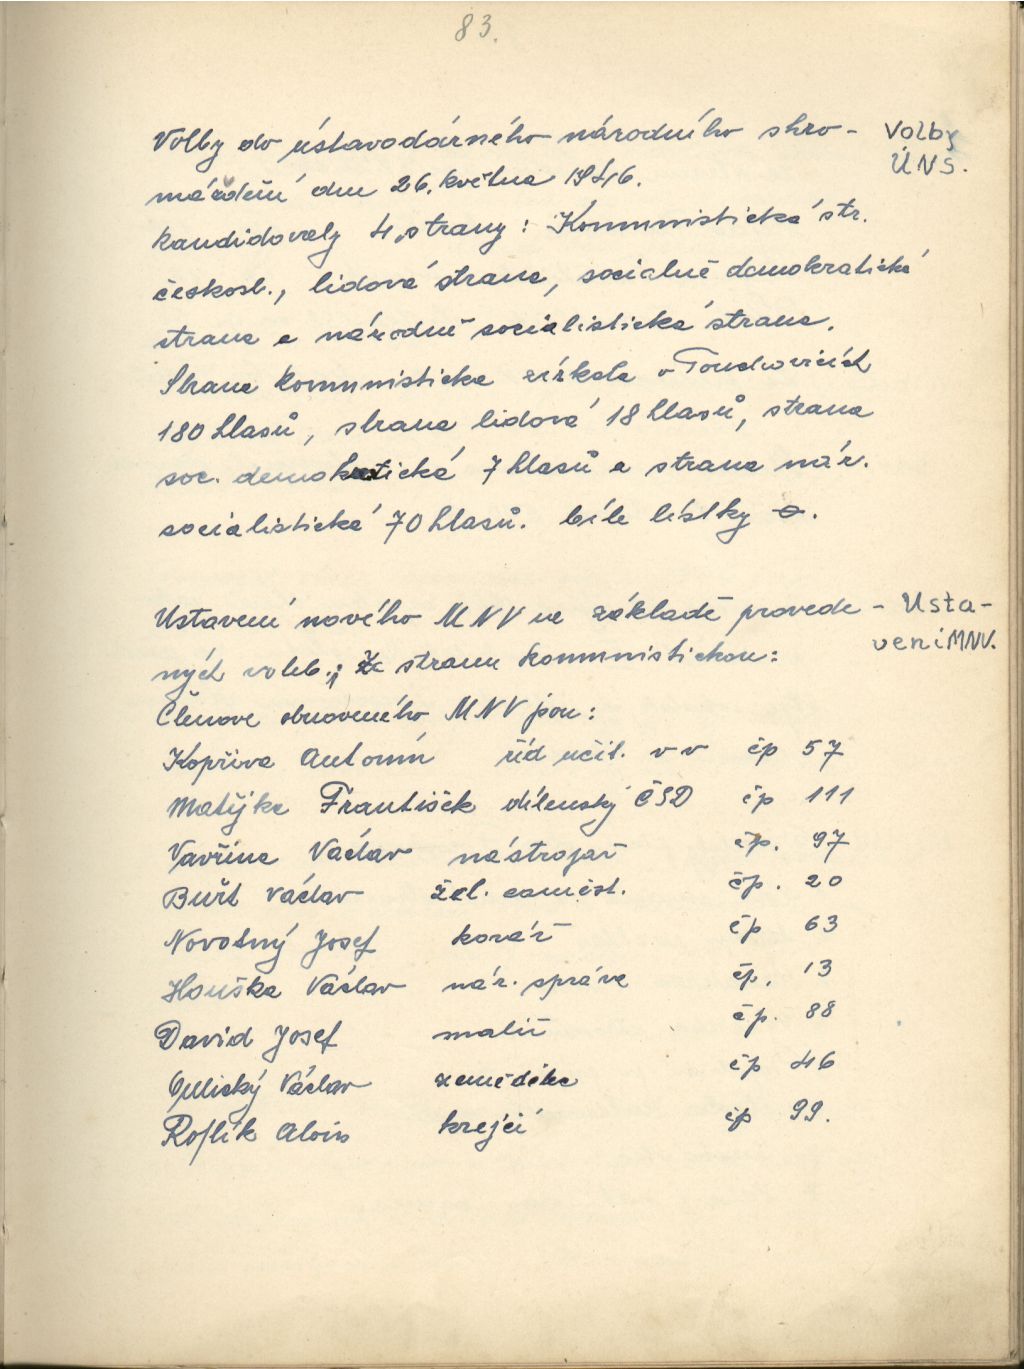 83.
Volby do ústavodárného národního shro-
Volby
ÚNS.
máždění dne 26. května 1946.
Kandidovaly 4 strany: Komunistická str.
českosl., lidová strana, sociálně demokratická
strana a národně socialistická strana.
Strana komunistická získala v
180 hlasů, strana lidová 18 hlasů, strana
soc. demokratická 7 hlasů a strana nár.
socialistická 70 hlasů. bíle lístky o.
Ustavení nového MNV na základě provede-
Usta-
vení MNV.
ných voleb.; Za stranu komunistickou:
Členové obnoveného MNV jsou:
Kopřiva Antonín říd učit. v v čp 57
Matějka František dílenský ČSD čp 111
Vavřina Václav nástrojař čp. 97
Buřt Václav žel. zaměst. čp. 20
Novotný Josef kovář čp 63
Houška Václav nár. správa čp. 13
David Josef malíř čp. 88
Václav zemědělec čp 46
Roflík Alois krejčí čp 99.